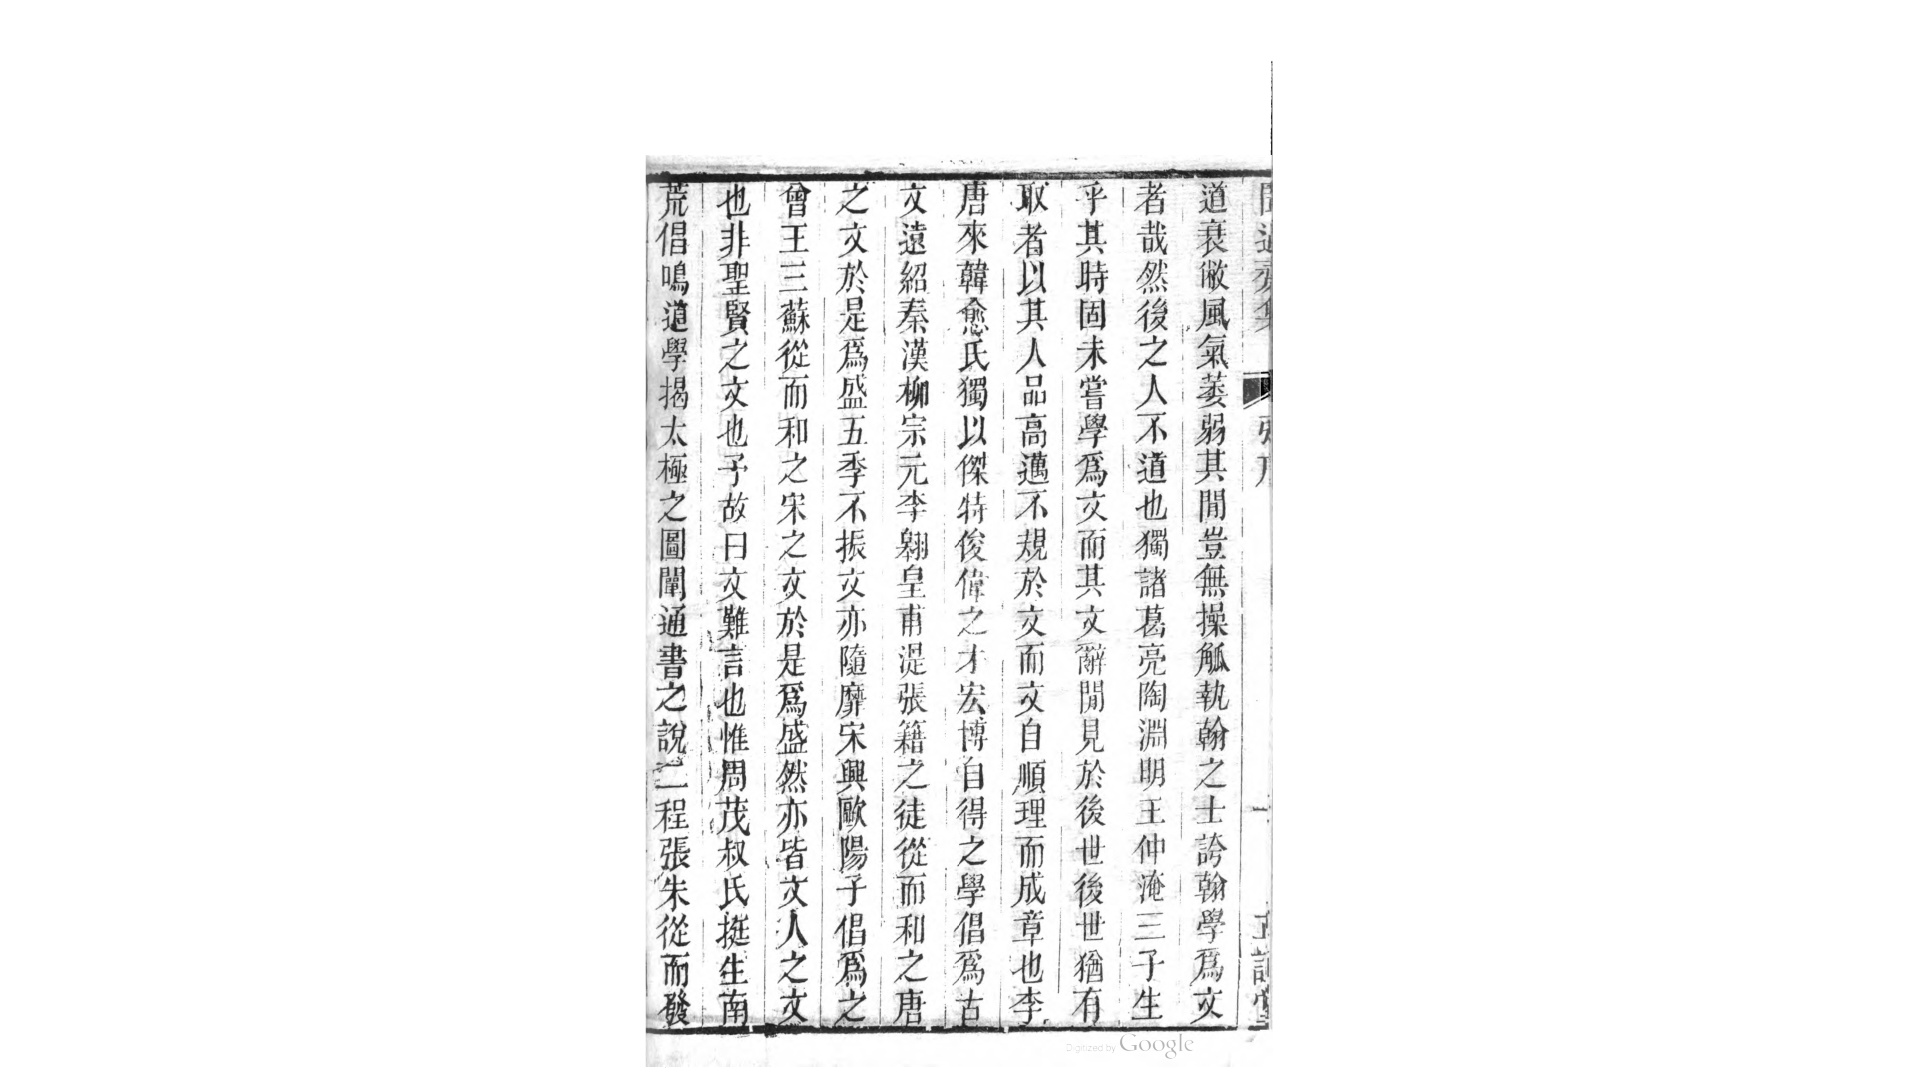 道衰敝風氣萎弱其閒豈無操觚執翰之士誇翰學爲文
者哉然後之人不道也獨諸葛亮陶淵明王仲淹三子生
乎其時固未嘗學爲文而其文辭閒見於後世後世猶有
取者以其人品高邁不規於文而文自順理而成章也李
唐來韓愈氏獨以傑特俊偉之才宏博自得之學倡爲古
文遠紹秦漢柳宗元李翱皇甫湜張籍之徒從而和之唐
之文於是爲盛五季不振文亦隨靡宋興歐陽子倡爲之
曾王三蘇從而和之宋之文於是爲盛然亦皆文人之文
也非聖賢之文也予故曰文難言也惟周茂叔氏挺生南
荒倡鳴道學揭太極之圖闡通書之說二程張朱從而發
Digitized by Google